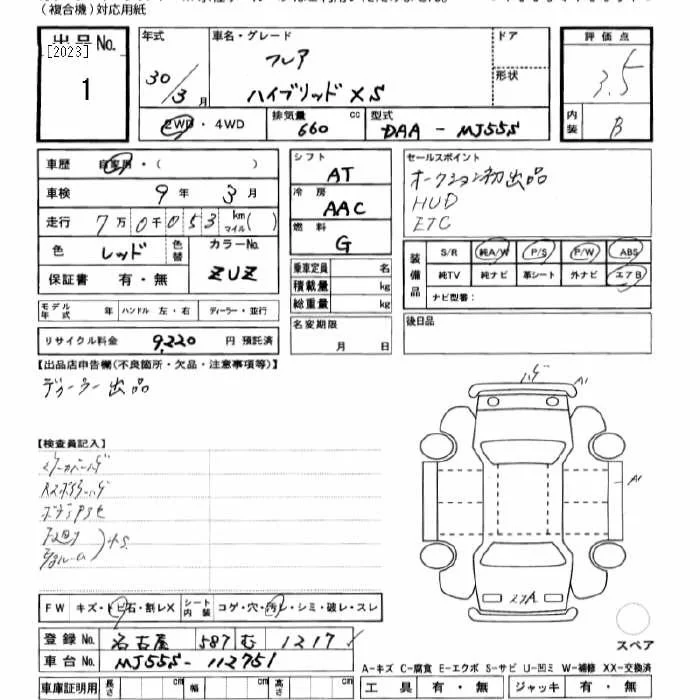 (複合機)対応用紙
出品No.
[2023]
1
年式
30/3月
車名・グレード
フレア
ハイブリッド XS
ドア
形状
2WD・4WD
排気量
660 cc
型式
DAA - MJ55S
評価点
3.5
内装
B
車歴 自家用・( )
車検 9年 3月
走行 7万0千053 km マイル( )
色 レッド 色替
カラーNo.
ZUZ
保証書 有・無
モデル年式 年 ハンドル 左・右 ディーラー・並行
リサイクル料金 9,220 円 預託済
シフト
AT
冷房
AAC
燃料
G
乗車定員 名
積載量 kg
総重量 kg
名変期限
月 日
セールスポイント
オークション初出品
HUD
ETC
装備品
S/R 純A/W P/S P/W ABS
純TV 純ナビ 革シート 外ナビ エアB
ナビ型番:
後日品
【出品店申告欄(不良箇所・欠品・注意事項等)】
ディーラー出品
【検査員記入】
FW キズ・トビ石・割レX
シート内装 コゲ・穴・汚レ・シミ・破レ・スレ
登録No. 名古屋 587 む 1217
車台No. MJ55S-112751
車庫証明用 長さ cm 幅 cm 高さ cm
A1
A1
スペア
A-キズ C-腐食 E-エクボ S-サビ U-凹ミ W-補修 XX-交換済
工具 有・無 ジャッキ 有・無